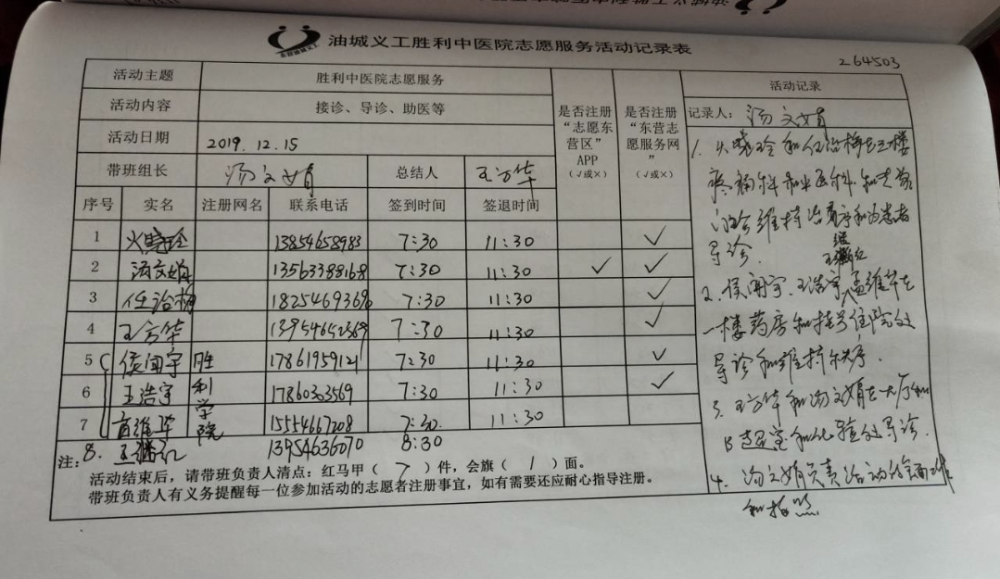 油城义工胜利中医院志愿服务活动记录表
264503
活动主题 胜利中医院志愿服务 是否注册“志愿东营区”APP（√或×） 是否注册“东营志愿服务网”（√或×） 活动记录
活动内容 接诊、导诊、助医等
活动日期 2019.12.15
带班组长 汤文娟 总结人 王方华
序号 实名 注册网名 联系电话 签到时间 签退时间
1 火晓玲 13854658983 7:30 11:30 √
2 汤文娟 13563388168 7:30 11:30 √ √
3 任治梅 1825469369 7:30 11:30 √
4 王方华 7:30 11:30 √
5 侯闻宇 胜利学院 17861959121 7:30 11:30 √
6 王浩宇 17860303569 7:30 11:30 √
7 15554667208 7:30 11:30
8. 王继红 13954636070 8:30
注：
活动结束后，请带班负责人清点：红马甲（7）件，会旗（1）面。
带班负责人有义务提醒每一位参加活动的志愿者注册事宜，如有需要还应耐心指导注册。
记录人：汤文娟
1. 火晓玲和任治梅在三楼
疼痛科和 科和专家
门诊维持 序和为患者
导诊.
2. 侯闻宇.王浩宇 王继红 孟维华在
一楼药房和挂号住院处
导诊和维持秩序.
3. 王方华和汤文娟在大厅和
B超室和化验处导诊.
4. 汤文娟负责活动全面工作
和拍照